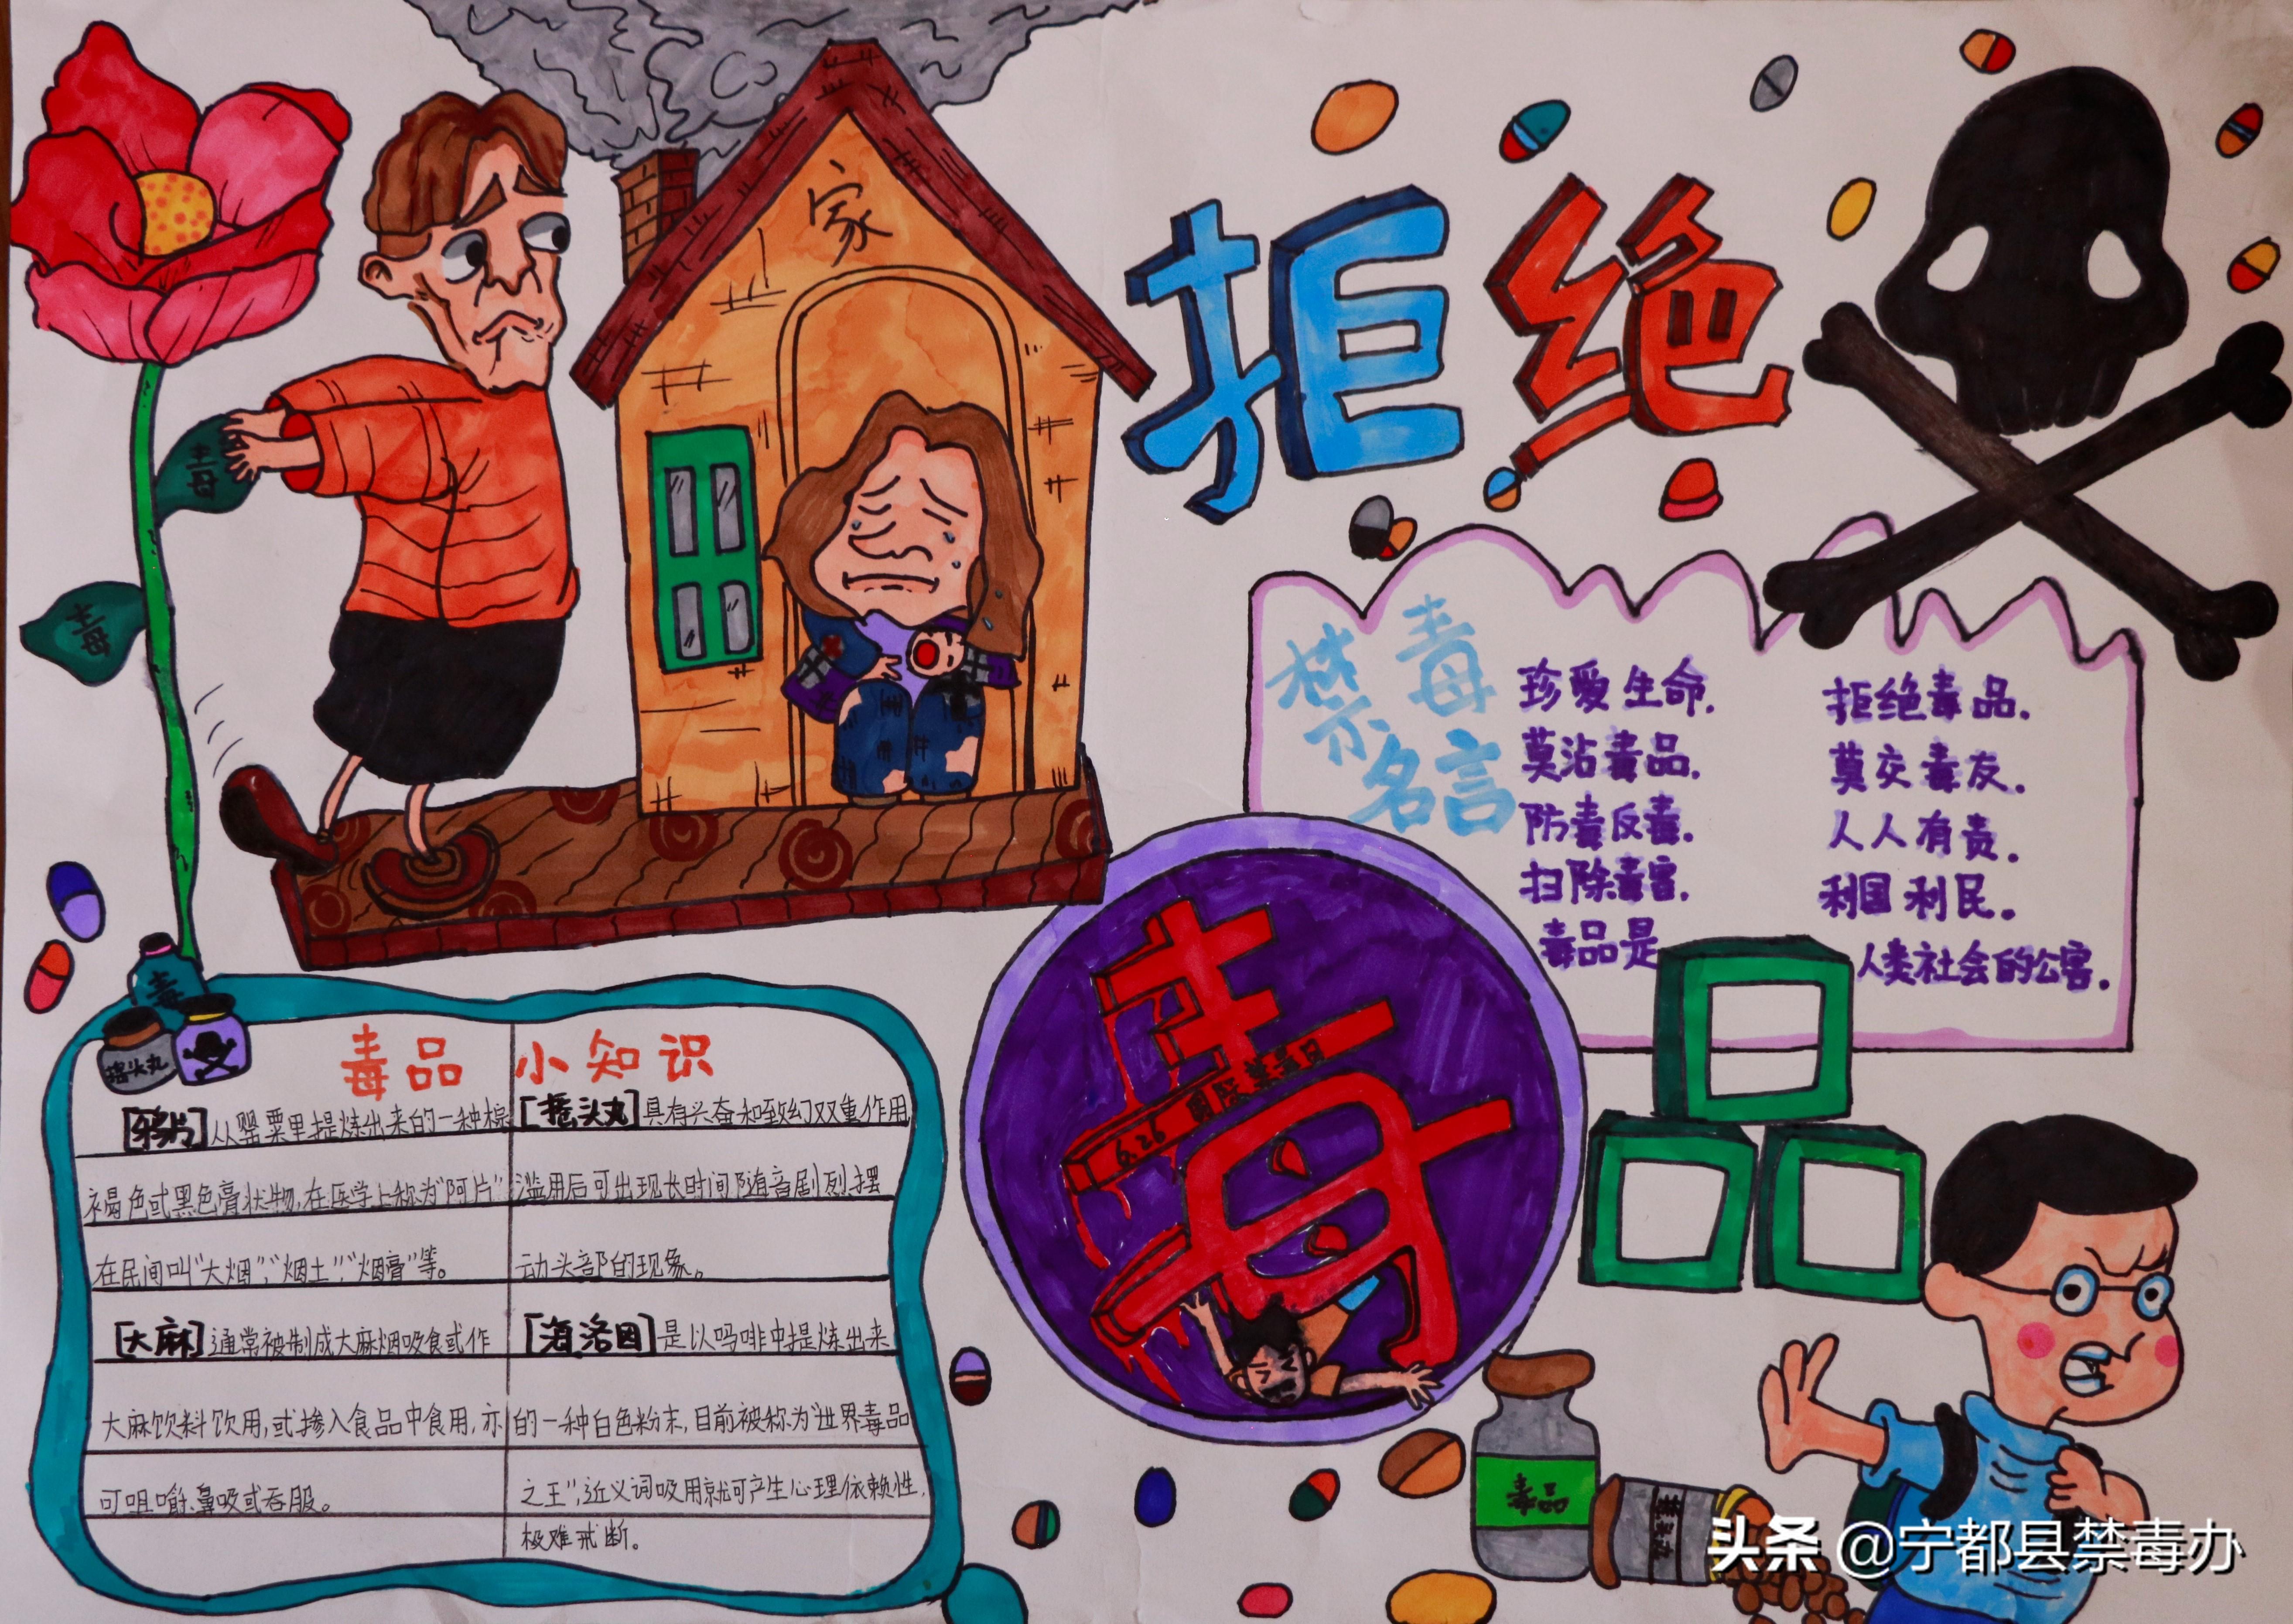 家
拒绝
毒
毒
禁毒名言
珍爱生命.
莫沾毒品.
防毒反毒.
扫除毒害.
毒品是
拒绝毒品.
莫交毒友.
人人有责.
利国利民.
人类社会的公害.
毒
6.26 国际禁毒日
品
毒
摇头丸
毒品小知识
[鸦片]从罂粟里提炼出来的一种棕
褐色或黑色膏状物,在医学上称为"阿片"
在民间叫"大烟","烟土","烟膏"等。
[大麻]通常被制成大麻烟吸食或作
大麻饮料饮用,或掺入食品中食用,亦
可咀嚼、鼻吸或吞服。
[摇头丸]具有兴奋和致幻双重作用,
滥用后可出现长时间随音剧烈摆
动头部的现象。
[海洛因]是以吗啡中提炼出来
的一种白色粉末,目前被称为"世界毒品
之王",近义词吸用就可产生心理依赖性,
极难戒断。
毒品
头条 @宁都县禁毒办